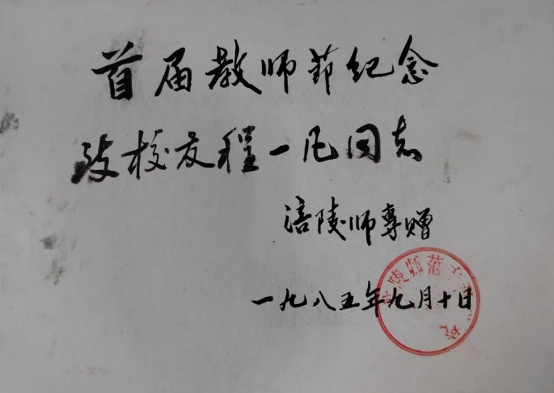 首届教师节纪念
致校友程一凡同志
涪陵师专赠
一九八五年九月十日
陵师范